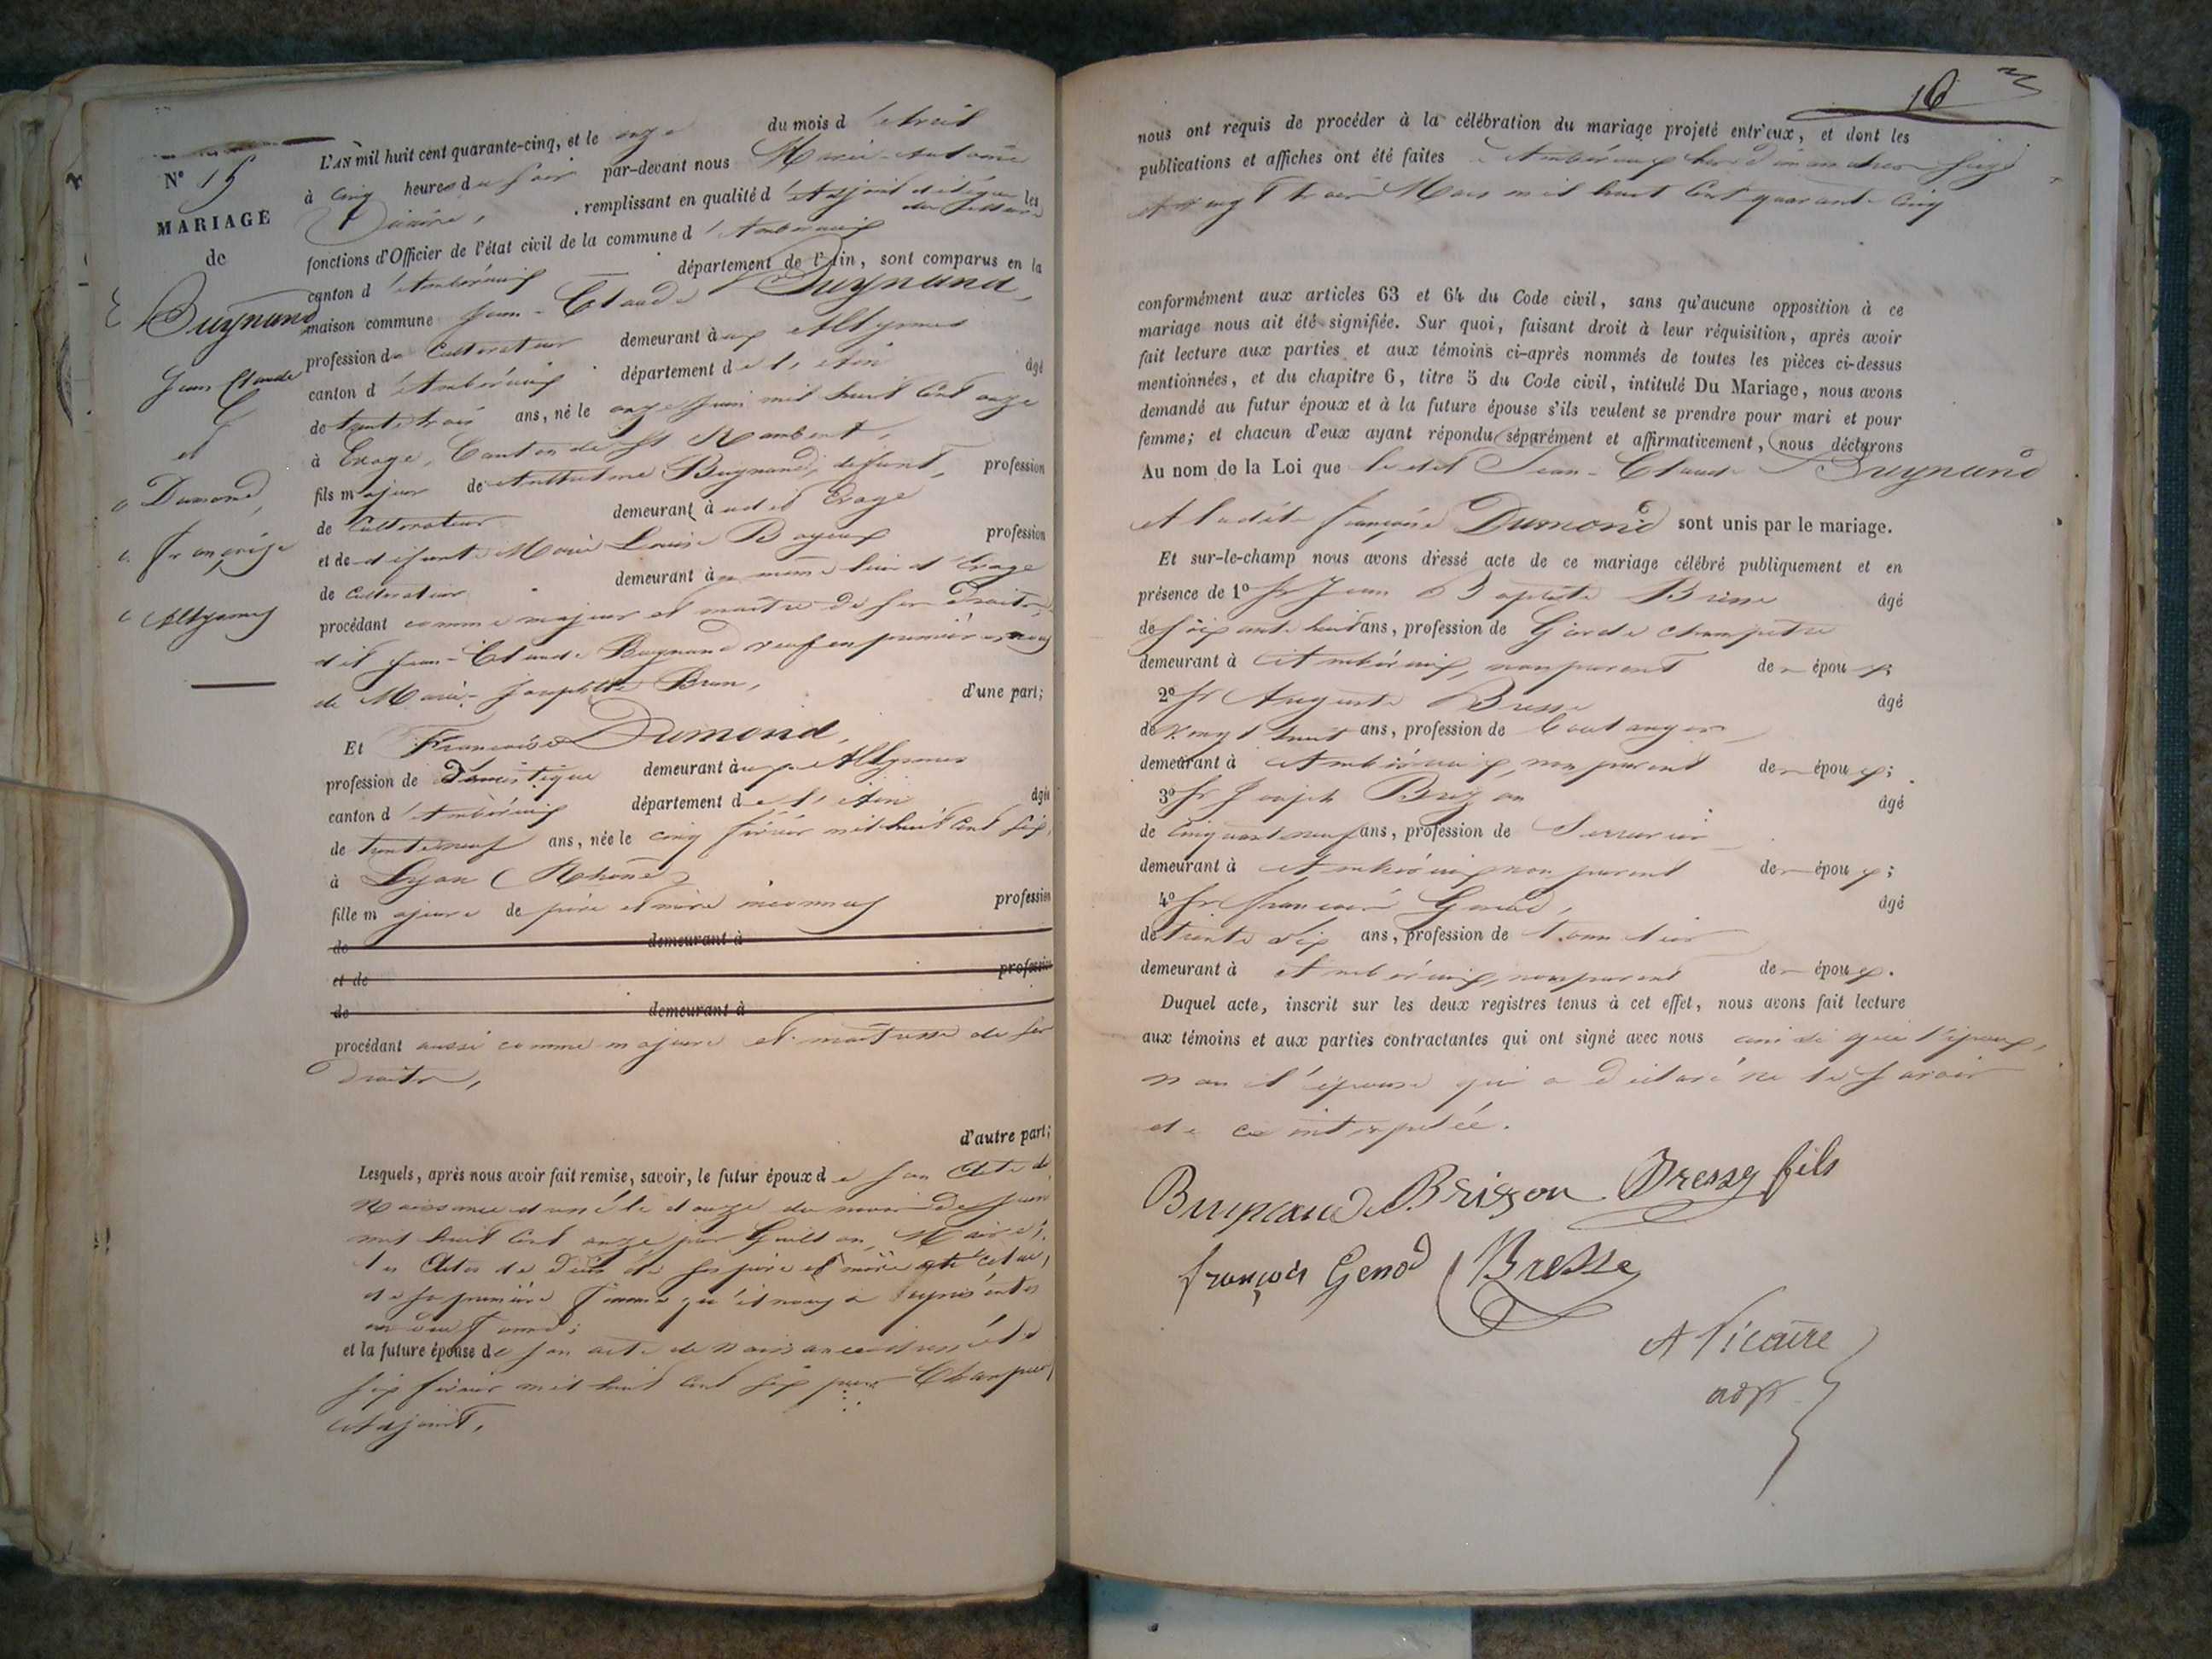 N° 15
MARIAGE
de
Buynand
Jean Claude
et
Dumond,
Françoise
Allymes
L'AN mil huit cent quarante-cinq, et le onze du mois d'Avril
à cinq heures du soir par-devant nous Marie-Antoine
remplissant en qualité d'Adjoint délégué les
fonctions d'Officier de l'état civil de la commune d'Ambérieux
canton d'Ambérieux département de l'Ain, sont comparus en la
maison commune Jean-Claude Buynand,
profession de Cultivateur demeurant aux Allymes
canton d'Ambérieux département de l'Ain âgé
de trente trois ans, né le onze Juin mil huit cent onze
à Evoge, Canton de St Rambert,
fils majeur de Anthelme Buynand, defunt, profession
de Cultivateur demeurant audit Evoge
et de défunte Marie Louise profession
de Cultivateur demeurant à même lieu d'Evoge
procédant comme majeur et maître de ses droits,
dit Jean-Claude Buynand veuf en première noces
de Marie-Josephte Brun, d'une part;
Et Françoise Dumond,
profession de Domestique demeurant aux Allymes
canton d'Ambérieux département de l'Ain âgée
de trente neuf ans, née le cinq février mil huit cent six,
à Lyon (Rhône)
fille majeure de père et mère inconnus profession
de demeurant à
et de profession
de demeurant à
procédant aussi comme majeure et maîtresse de ses
droits,
d'autre part;
Lesquels, après nous avoir fait remise, savoir, le futur époux de son Acte de
Naissance dressé le douze du mois de Juin
mil huit cent onze par Maire;
les Actes de décès de ses père et mère et celui
de sa première femme qu'il nous a représentés
en forme;
et la future épouse de son acte de naissance dressé le
six février mil huit cent six par
Adjoint,
16
nous ont requis de procéder à la célébration du mariage projeté entr'eux, et dont les
publications et affiches ont été faites à Ambérieux les dimanches seize
et vingt trois Mars mil huit cent quarante cinq
conformément aux articles 63 et 64 du Code civil, sans qu'aucune opposition à ce
mariage nous ait été signifiée. Sur quoi, faisant droit à leur réquisition, après avoir
fait lecture aux parties et aux témoins ci-après nommés de toutes les pièces ci-dessus
mentionnées, et du chapitre 6, titre 5 du Code civil, intitulé Du Mariage, nous avons
demandé au futur époux et à la future épouse s'ils veulent se prendre pour mari et pour
femme; et chacun d'eux ayant répondu séparément et affirmativement, nous déclarons
Au nom de la Loi que le dit Jean-Claude Buynand
et ladite Françoise Dumond sont unis par le mariage.
Et sur-le-champ nous avons dressé acte de ce mariage célébré publiquement et en
présence de 1° Sr Jean Baptiste Bresse âgé
de soixante huit ans, profession de Garde champetre
demeurant à Ambérieux, non parent de époux;
2° Sr Auguste Bresse âgé
de vingt huit ans, profession de boulanger
demeurant à Ambérieux, non parent de époux;
3° Sr Joseph âgé
de cinquante neuf ans, profession de Serrurier
demeurant à Ambérieux non parent de époux;
4° Sr François Genod, âgé
de trente six ans, profession de
demeurant à Ambérieux, non parent de époux.
Duquel acte, inscrit sur les deux registres tenus à cet effet, nous avons fait lecture
aux témoins et aux parties contractantes qui ont signé avec nous ainsi que l'époux,
non l'épouse qui a déclaré ne le savoir
de ce interpellée.
Buynand Brisson Bresse fils
françois Genod Bresse
A Vicaire
adjt